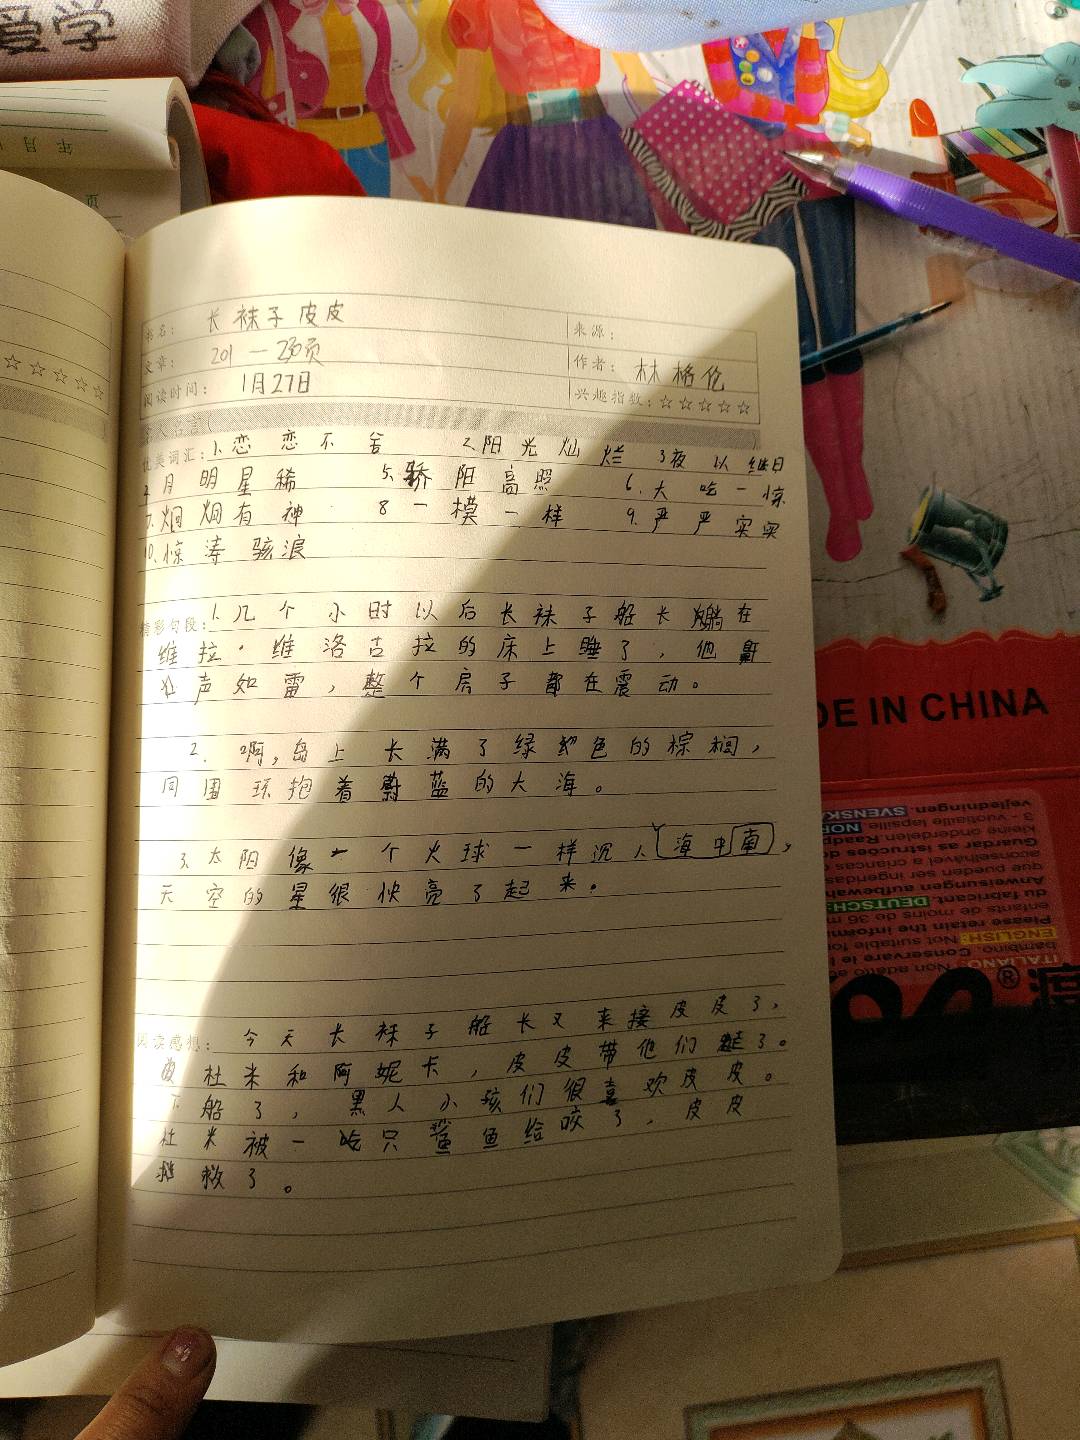 爱学
年 月
页
书名： 长袜子皮皮
来源：
文章： 201—230页
作者： 林格伦
阅读时间： 1月27日
兴趣指数：☆☆☆☆☆
名人名言(
)
优美词汇：1.恋恋不舍 2.阳光灿烂 3夜以继日
2.月明星稀 5.骄阳高照 6.大吃一惊
7.炯炯有神 8一模一样 9.严严实实
10.惊涛骇浪
精彩句段：1.几个小时以后长袜子船长躺在
维拉·维洛古拉的床上睡了，他鼾
声如雷，整个房子都在震动。
2.啊,岛上长满了绿色的棕榈，
同围环抱着蔚蓝的大海。
3.太阳像一个火球一样沉入海中南，
天空的星很快亮了起来。
阅读感想： 今天长袜子船长又来接皮皮了，
杜米和阿妮卡，皮皮带他们走了。
下船了，黑人小孩们很喜欢皮皮。
杜米被一吃只鲨鱼给咬了，皮皮
拯救了。
MADE IN CHINA
vejledningen.
SVENSKA
3 - vuotiaille lapsille.
DEUTSCH:
ENGLISH:
Please retain the
ITALIANO:
®